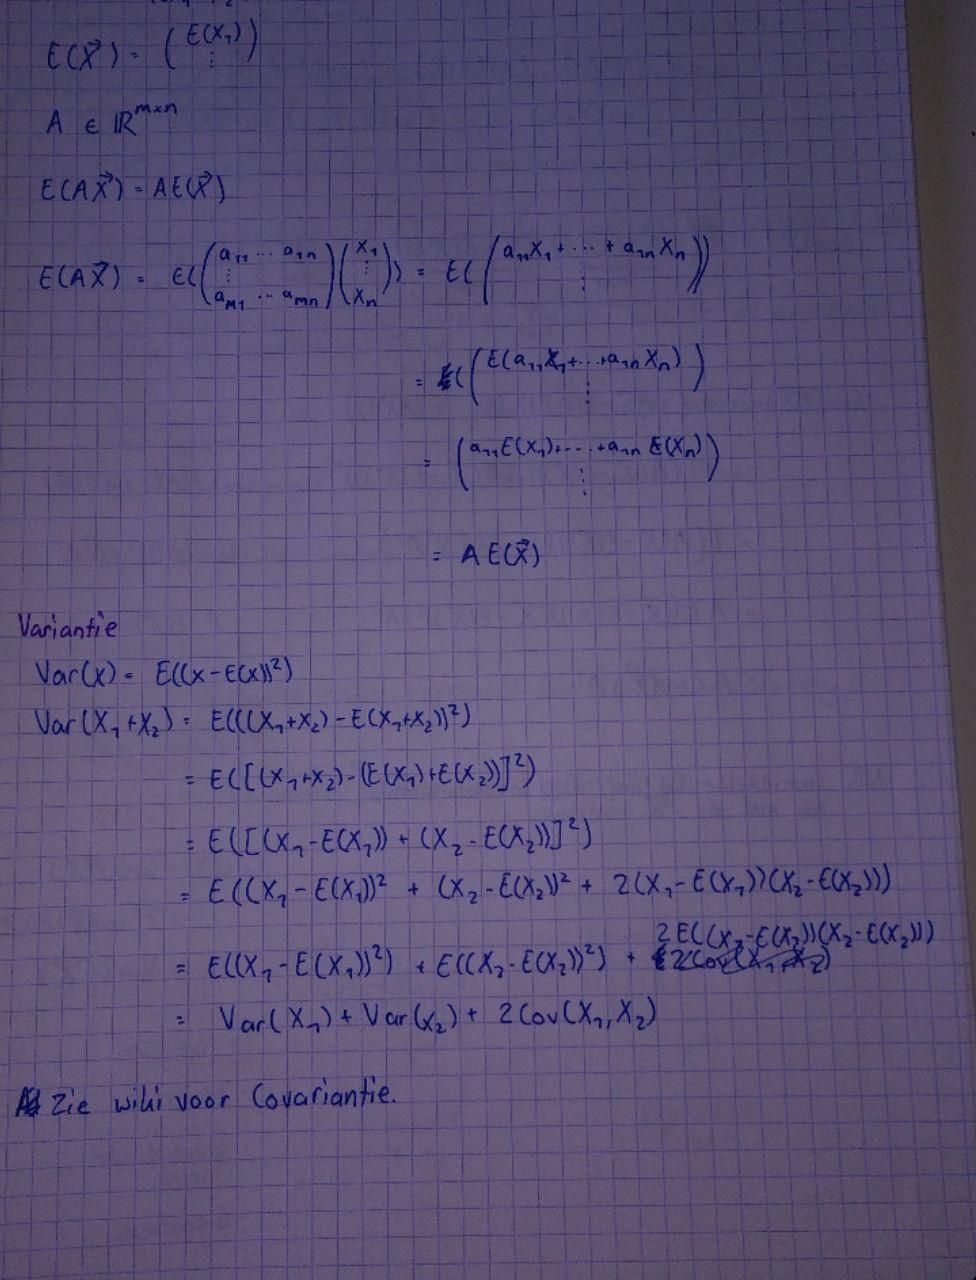 E(X⃗) = (E(X₁) ⋮)
A ∈ ℝᵐˣⁿ
E(AX⃗) = AE(X⃗)
E(AX⃗) = E((a₁₁ ... a₁ₙ ⋮ aₘ₁ ... aₘₙ)(X₁ ⋮ Xₙ)) = E((a₁₁X₁ + ... + a₁ₙXₙ ⋮))
= ((E(a₁₁X₁+...+a₁ₙXₙ) ⋮)
= (a₁₁E(X₁)+...+a₁ₙE(Xₙ) ⋮)
= AE(X⃗)
Variantie
Var(X) = E((X-E(X))²)
Var(X₁+X₂) = E(((X₁+X₂)-E(X₁+X₂))²)
= E([(X₁+X₂)-(E(X₁)+E(X₂))]²)
= E([(X₁-E(X₁)) + (X₂-E(X₂))]²)
= E((X₁-E(X₁))² + (X₂-E(X₂))² + 2(X₁-E(X₁))(X₂-E(X₂)))
= E((X₁-E(X₁))²) + E((X₂-E(X₂))²) + 2E((X₁-E(X₁))(X₂-E(X₂)))
= Var(X₁) + Var(X₂) + 2Cov(X₁,X₂)
Zie wiki voor Covariantie.